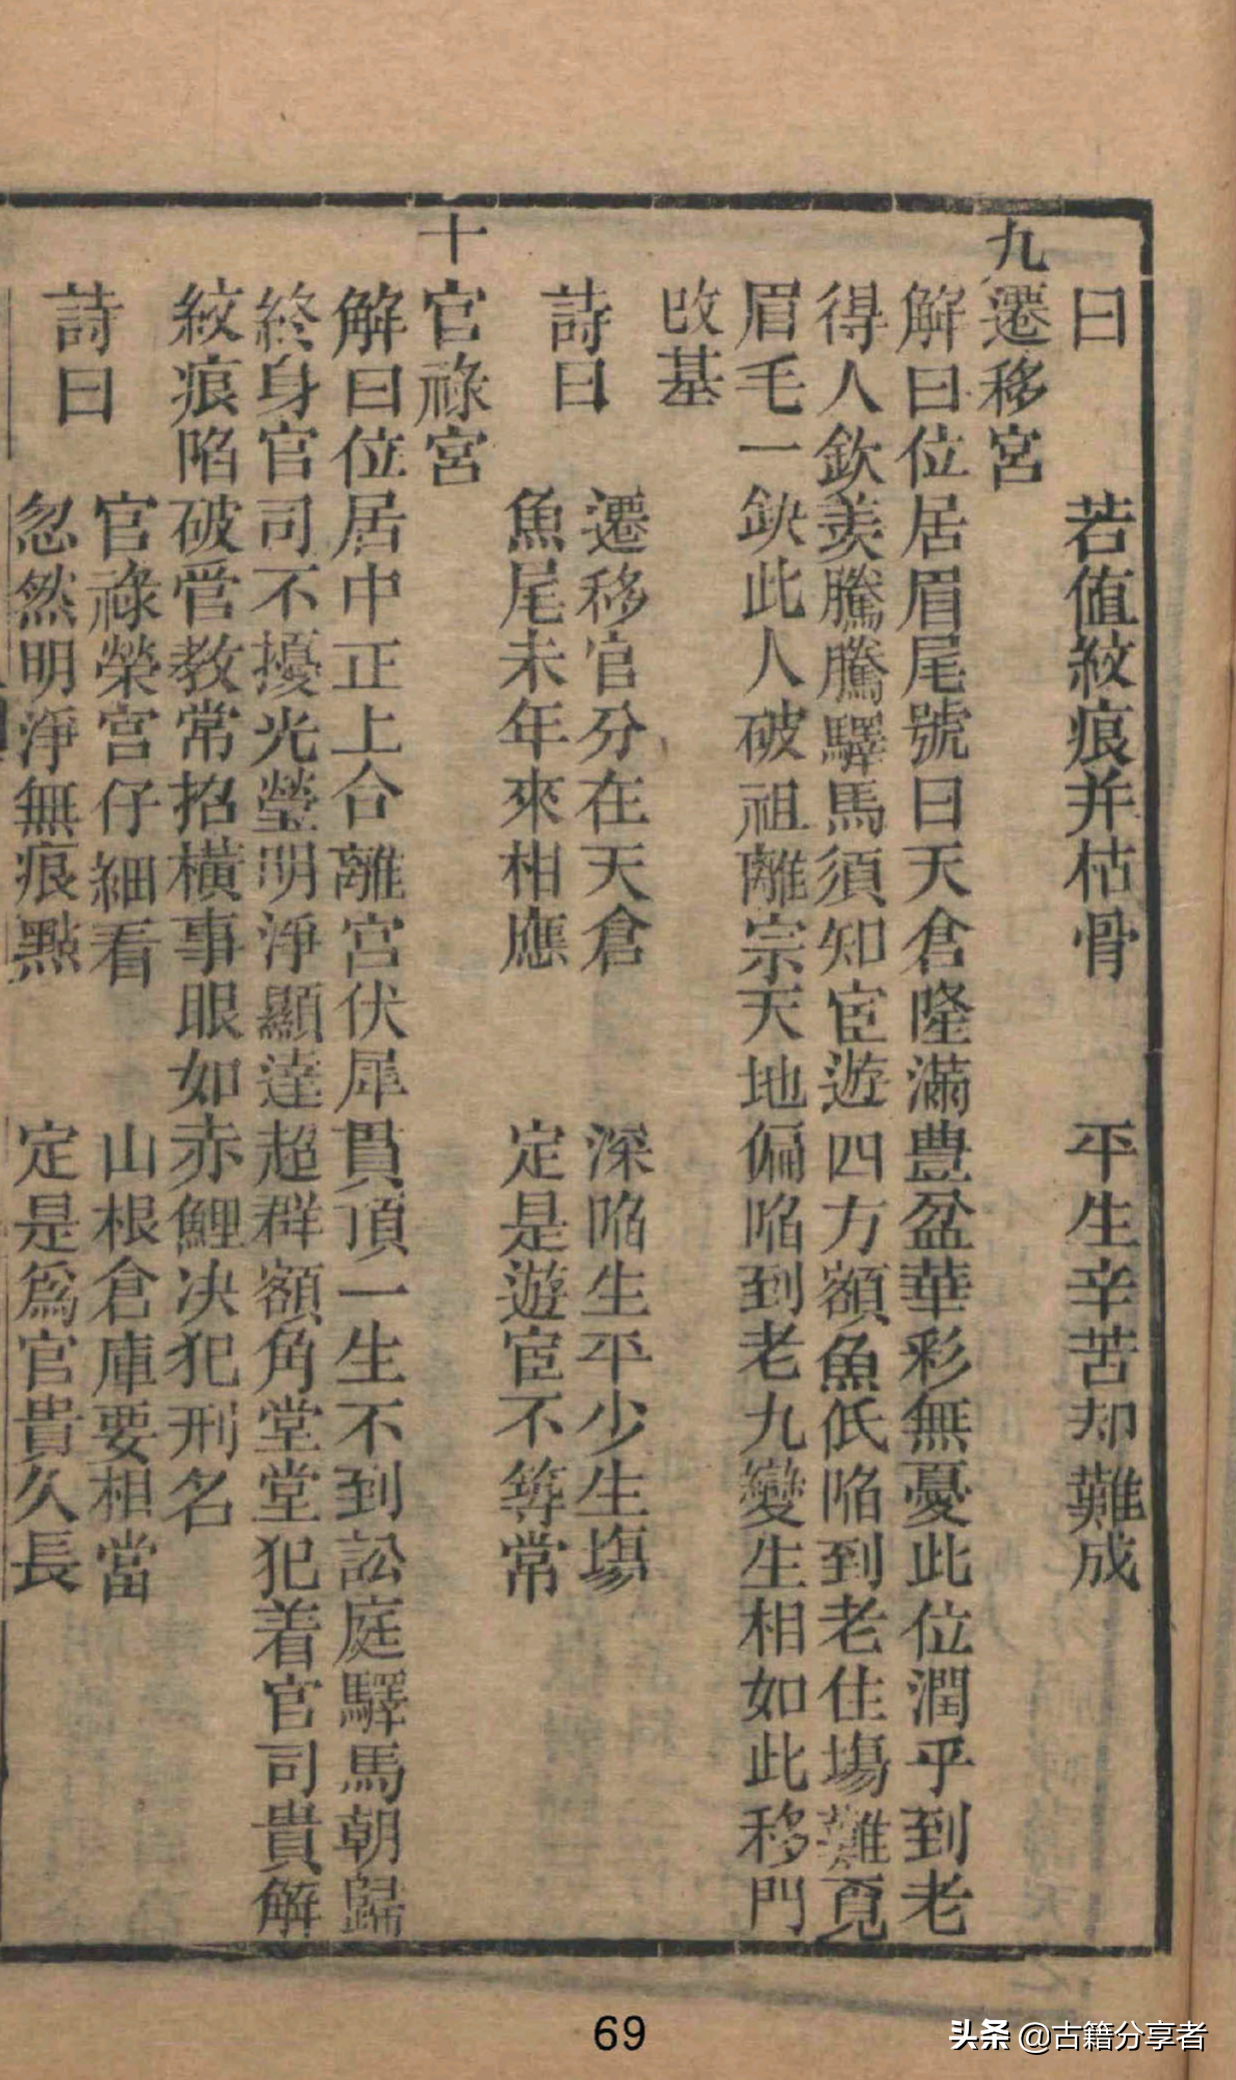 曰　若值紋痕并枯骨　平生辛苦却難成
九遷移宮
解曰位居眉尾號曰天倉隆滿豊盆華彩無憂此位潤乎到老
得人欽羡騰騰驛馬須知宦遊四方額魚低陷到老住塲難覓
眉毛一缺此人破祖離宗天地偏陷到老九變生相如此移門
改基
詩曰　遷移官分在天倉　深陷生平少生塲
魚尾未年來相應　定是遊宦不等常
十官祿宮
解曰位居中正上合離宮伏犀貫頂一生不到訟庭驛馬朝歸
終身官司不擾光瑩明淨顯達超群額角堂堂犯着官司貴解
紋痕陷破管教常招橫事眼如赤鯉决犯刑名
詩曰　官祿榮宮仔細看　山根倉庫要相當
忽然明淨無痕點　定是爲官貴久長
69
头条 @古籍分享者